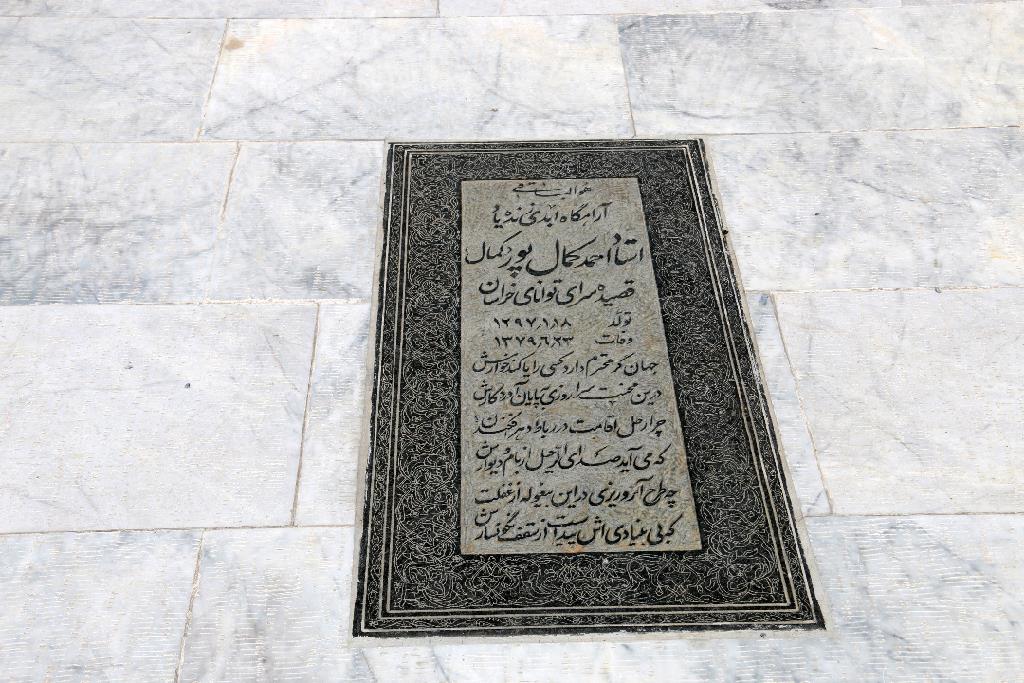 هوالباقی
آرامگاه ابدی زنده‌یاد
استاد احمد کمال پور «کمال»
قصیده سرای توانای خراسان
تولد ۱۲۹۷٫۱٫۱۸
وفات ۱۳۷۹٫۶٫۲۳
جهان گر محترم دارد کسی را یا کند خوارش
درین محنت سرا روزی بپایان آورد کارش
چرا رحل اقامت در رباط دهر افکندن
که می آید صدای الرحیل از بام و دیوارش
چه طرح آرزو ریزی در این بیغوله از غفلت
که بی بنیادی اش پیداست از سقف نگونسارش